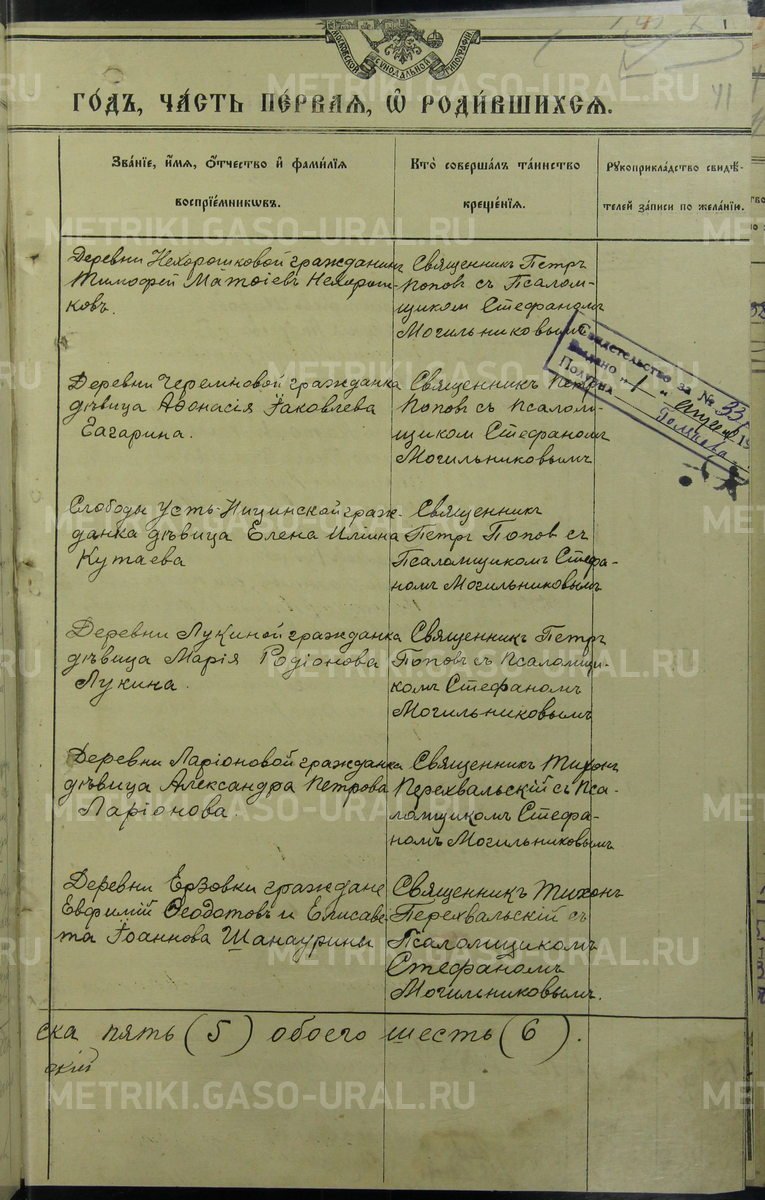 МОСКОВСКОЙ СѴНОДАЛЬНОЙ ТИПОГРАФІИ
1
41
ГО́ДЪ, ЧА́СТЬ ПЕ́РВАѦ, Ѡ҆ РОДИ́ВШИХСѦ.
Зва́нїе, и҆́мѧ, ѻ҆́тчество и҆ фами́лїѧ
воспрїе́мникѡвъ.
Кто̀ соверша́лъ та́инство
креще́нїѧ.
Рꙋкоприкла́дство свидѣ́-
телей за́писи по жела́нїю.
Деревни Нехорошковой гражданинъ
Тимофей Матѳіевъ Нехорош-
ковъ.
Священникъ Петръ
Поповъ съ Псалом-
щикомъ Стефаномъ
Могильниковымъ
Свидетельство за № 33
Выдано "1"
Получил
Деревни Черемновой гражданка
дѣвица Аѳонасія Іаковлева
Гагарина.
Священникъ Петръ
Поповъ съ Псалом-
щикомъ Стефаномъ
Могильниковымъ
Слободы Усть-Ницинской граж-
данка дѣвица Елена Иліина
Кутаева
Священникъ
Петръ Поповъ съ
Псаломщикомъ Стефа-
номъ Могильниковымъ
Деревни Лукиной гражданка
дѣвица Марія Родіонова
Лукина.
Священникъ Петръ
Поповъ съ Псаломщи-
комъ Стефаномъ
Могильниковымъ
Деревни Ларіоновой гражданка
дѣвица Александра Петрова
Ларіонова.
Священникъ Тихонъ
Перехвальскій съ Пса-
ломщикомъ Стефа-
номъ Могильниковымъ
Деревни Ерзовки граждане
Евфимій Ѳеодотовъ и Елисаве-
та Іоаннова Шанаурины
Священникъ Тихонъ
Перехвальскій съ
Псаломщикомъ
Стефаномъ
Могильниковымъ.
ска пять (5) обоего шесть (6).
скій
METRIKI.GASO-URAL.RU